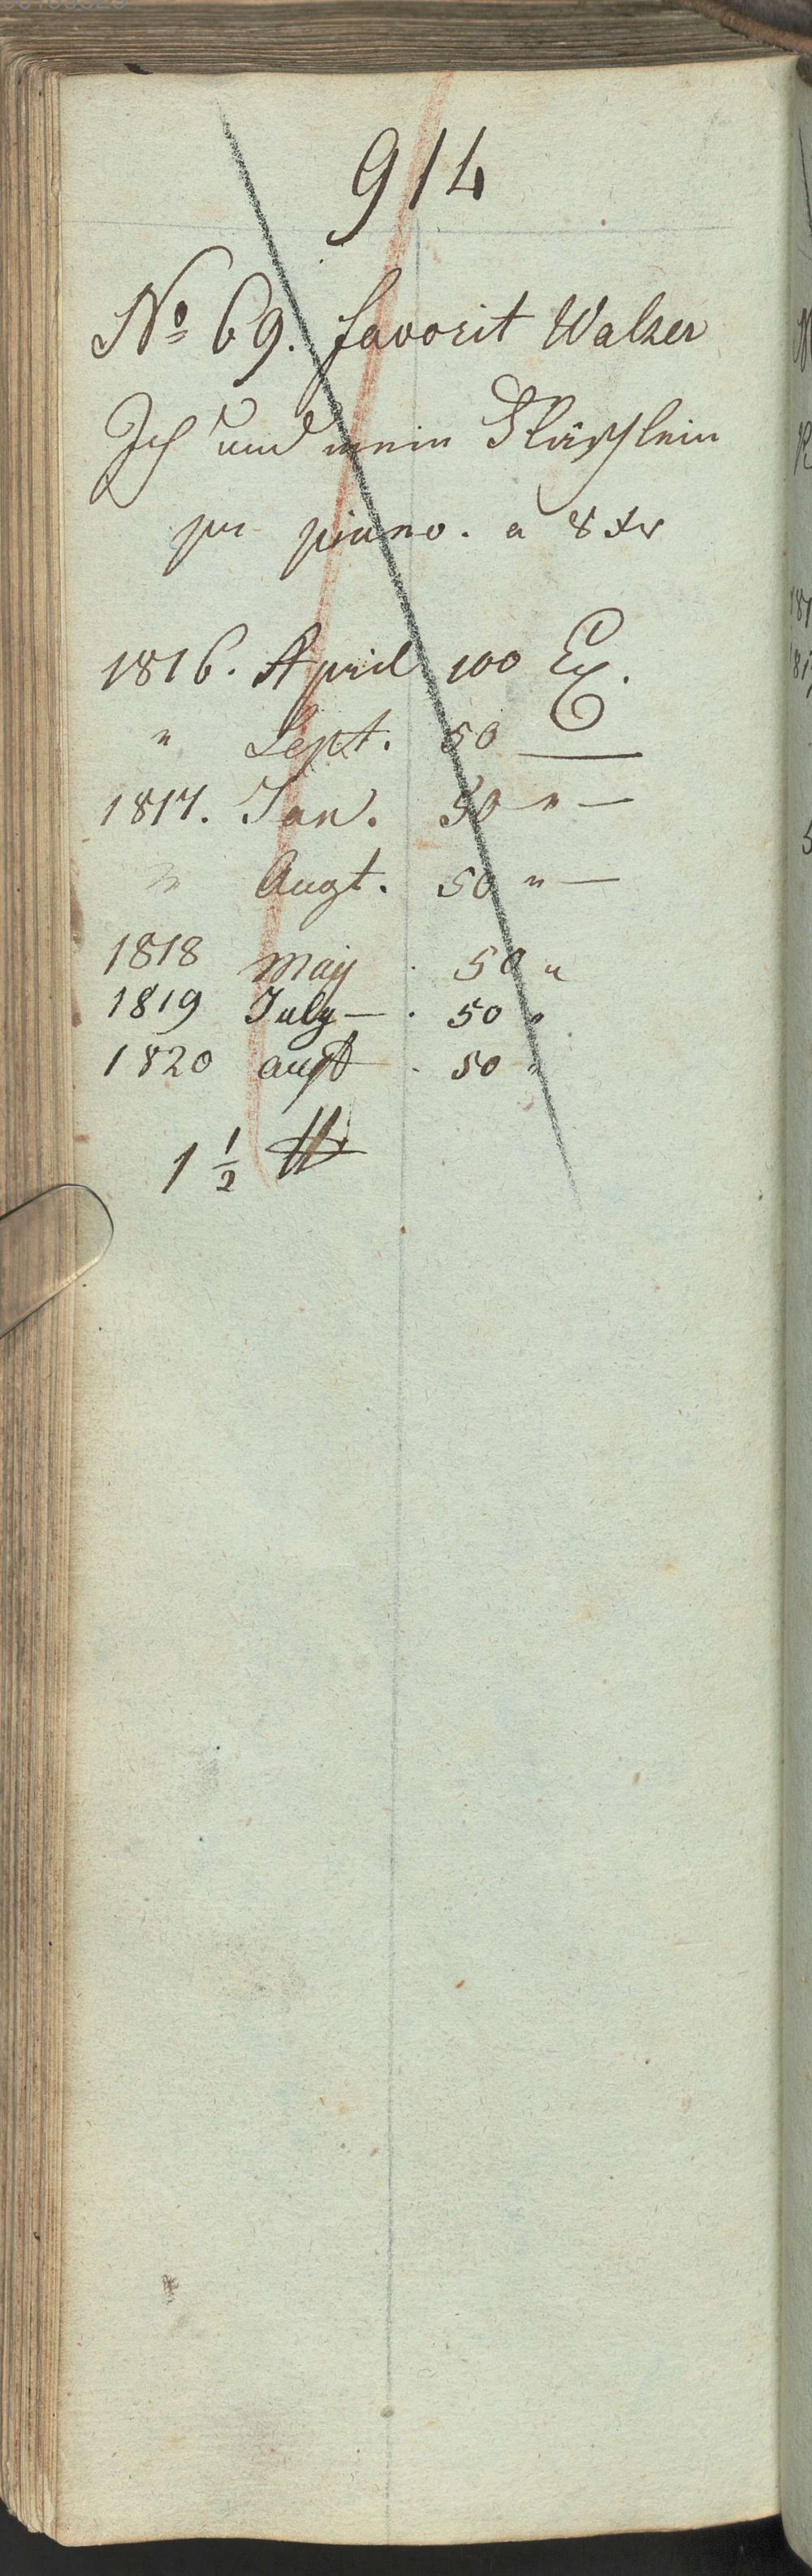 914
No 69. favorit Walzer
Ich und mein Fläschlein
pr piano. a 8 xr
1816. April 100 Ex.
" Sept. 50 —
1817. Jan. 50 " —
" Augt. 50 " —
1818 May . 50 "
1819 July — . 50 "
1820 augt . 50 "
1 1/2 ℔